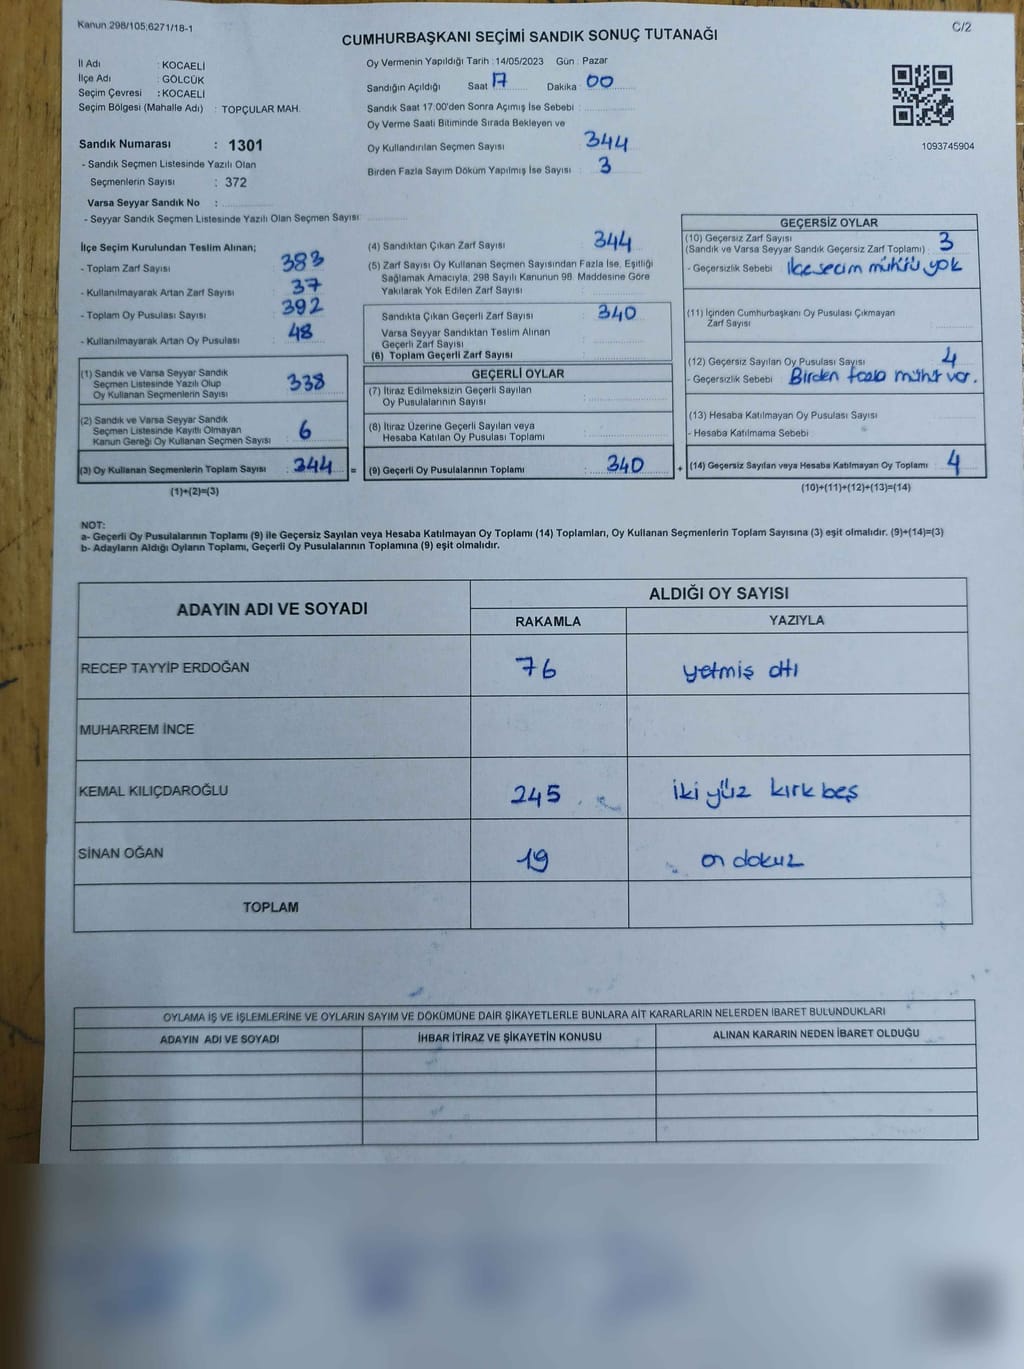 Kanun 298/105,6271/18-1
C/2
CUMHURBAŞKANI SEÇİMİ SANDIK SONUÇ TUTANAĞI
İl Adı : KOCAELİ
İlçe Adı : GÖLCÜK
Seçim Çevresi : KOCAELİ
Seçim Bölgesi (Mahalle Adı) : TOPÇULAR MAH.
Sandık Numarası : 1301
- Sandık Seçmen Listesinde Yazılı Olan
Seçmenlerin Sayısı : 372
Varsa Seyyar Sandık No :
- Seyyar Sandık Seçmen Listesinde Yazılı Olan Seçmen Sayısı
Oy Vermenin Yapıldığı Tarih :14/05/2023 Gün : Pazar
Sandığın Açıldığı Saat 17 Dakika 00
Sandık Saat 17:00'den Sonra Açımış İse Sebebi :
Oy Verme Saati Bitiminde Sırada Bekleyen ve
Oy Kullandırılan Seçmen Sayısı 344
Birden Fazla Sayım Döküm Yapılmış İse Sayısı : 3
1093745904
İlçe Seçim Kurulundan Teslim Alınan;
- Toplam Zarf Sayısı : 383
- Kullanılmayarak Artan Zarf Sayısı : 37
- Toplam Oy Pusulası Sayısı : 392
- Kullanılmayarak Artan Oy Pusulası : 48
(1) Sandık ve Varsa Seyyar Sandık
Seçmen Listesinde Yazılı Olup
Oy Kullanan Seçmenlerin Sayısı : 338
(2) Sandık ve Varsa Seyyar Sandık
Seçmen Listesinde Kayıtlı Olmayan
Kanun Gereği Oy Kullanan Seçmen Sayısı : 6
(3) Oy Kullanan Seçmenlerin Toplam Sayısı : 344 =
(1)+(2)=(3)
(4) Sandıktan Çıkan Zarf Sayısı : 344
(5) Zarf Sayısı Oy Kullanan Seçmen Sayısından Fazla İse, Eşitliği
Sağlamak Amacıyla, 298 Sayılı Kanunun 98. Maddesine Göre
Yakılarak Yok Edilen Zarf Sayısı :
Sandıkta Çıkan Geçerli Zarf Sayısı : 340
Varsa Seyyar Sandıktan Teslim Alınan
Geçerli Zarf Sayısı :
(6) Toplam Geçerli Zarf Sayısı :
GEÇERLİ OYLAR
(7) İtiraz Edilmeksizin Geçerli Sayılan
Oy Pusulalarının Sayısı :
(8) İtiraz Üzerine Geçerli Sayılan veya
Hesaba Katılan Oy Pusulası Toplamı :
(9) Geçerli Oy Pusulalarının Toplamı : 340 +
GEÇERSİZ OYLAR
(10) Geçersiz Zarf Sayısı
(Sandık ve Varsa Seyyar Sandık Geçersiz Zarf Toplamı) : 3
- Geçersizlik Sebebi : ilçe seçim mühürü yok
(11) İçinden Cumhurbaşkanı Oy Pusulası Çıkmayan
Zarf Sayısı :
(12) Geçersiz Sayılan Oy Pusulası Sayısı : 4
- Geçersizlik Sebebi : Birden fazla mühür var.
(13) Hesaba Katılmayan Oy Pusulası Sayısı :
- Hesaba Katılmama Sebebi :
(14) Geçersiz Sayılan veya Hesaba Katılmayan Oy Toplamı : 4
(10)+(11)+(12)+(13)=(14)
NOT:
a- Geçerli Oy Pusulalarının Toplamı (9) ile Geçersiz Sayılan veya Hesaba Katılmayan Oy Toplamı (14) Toplamları, Oy Kullanan Seçmenlerin Toplam Sayısına (3) eşit olmalıdır. (9)+(14)=(3)
b- Adayların Aldığı Oyların Toplamı, Geçerli Oy Pusulalarının Toplamına (9) eşit olmalıdır.
ADAYIN ADI VE SOYADI
ALDIĞI OY SAYISI
RAKAMLA YAZIYLA
RECEP TAYYİP ERDOĞAN 76 yetmiş altı
MUHARREM İNCE
KEMAL KILIÇDAROĞLU 245 iki yüz kırk beş
SİNAN OĞAN 19 on dokuz
TOPLAM
OYLAMA İŞ VE İŞLEMLERİNE VE OYLARIN SAYIM VE DÖKÜMÜNE DAİR ŞİKAYETLERLE BUNLARA AİT KARARLARIN NELERDEN İBARET BULUNDUKLARI
ADAYIN ADI VE SOYADI İHBAR İTİRAZ VE ŞİKAYETİN KONUSU ALINAN KARARIN NEDEN İBARET OLDUĞU